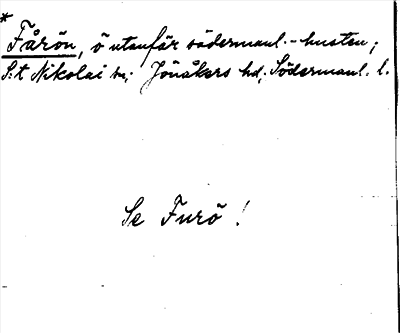 *
Fårön, ö utanför södermanl.-kusten;
S:t Nikolai sn; Jönåkers hd; Södermanl. l.
Se Furö!